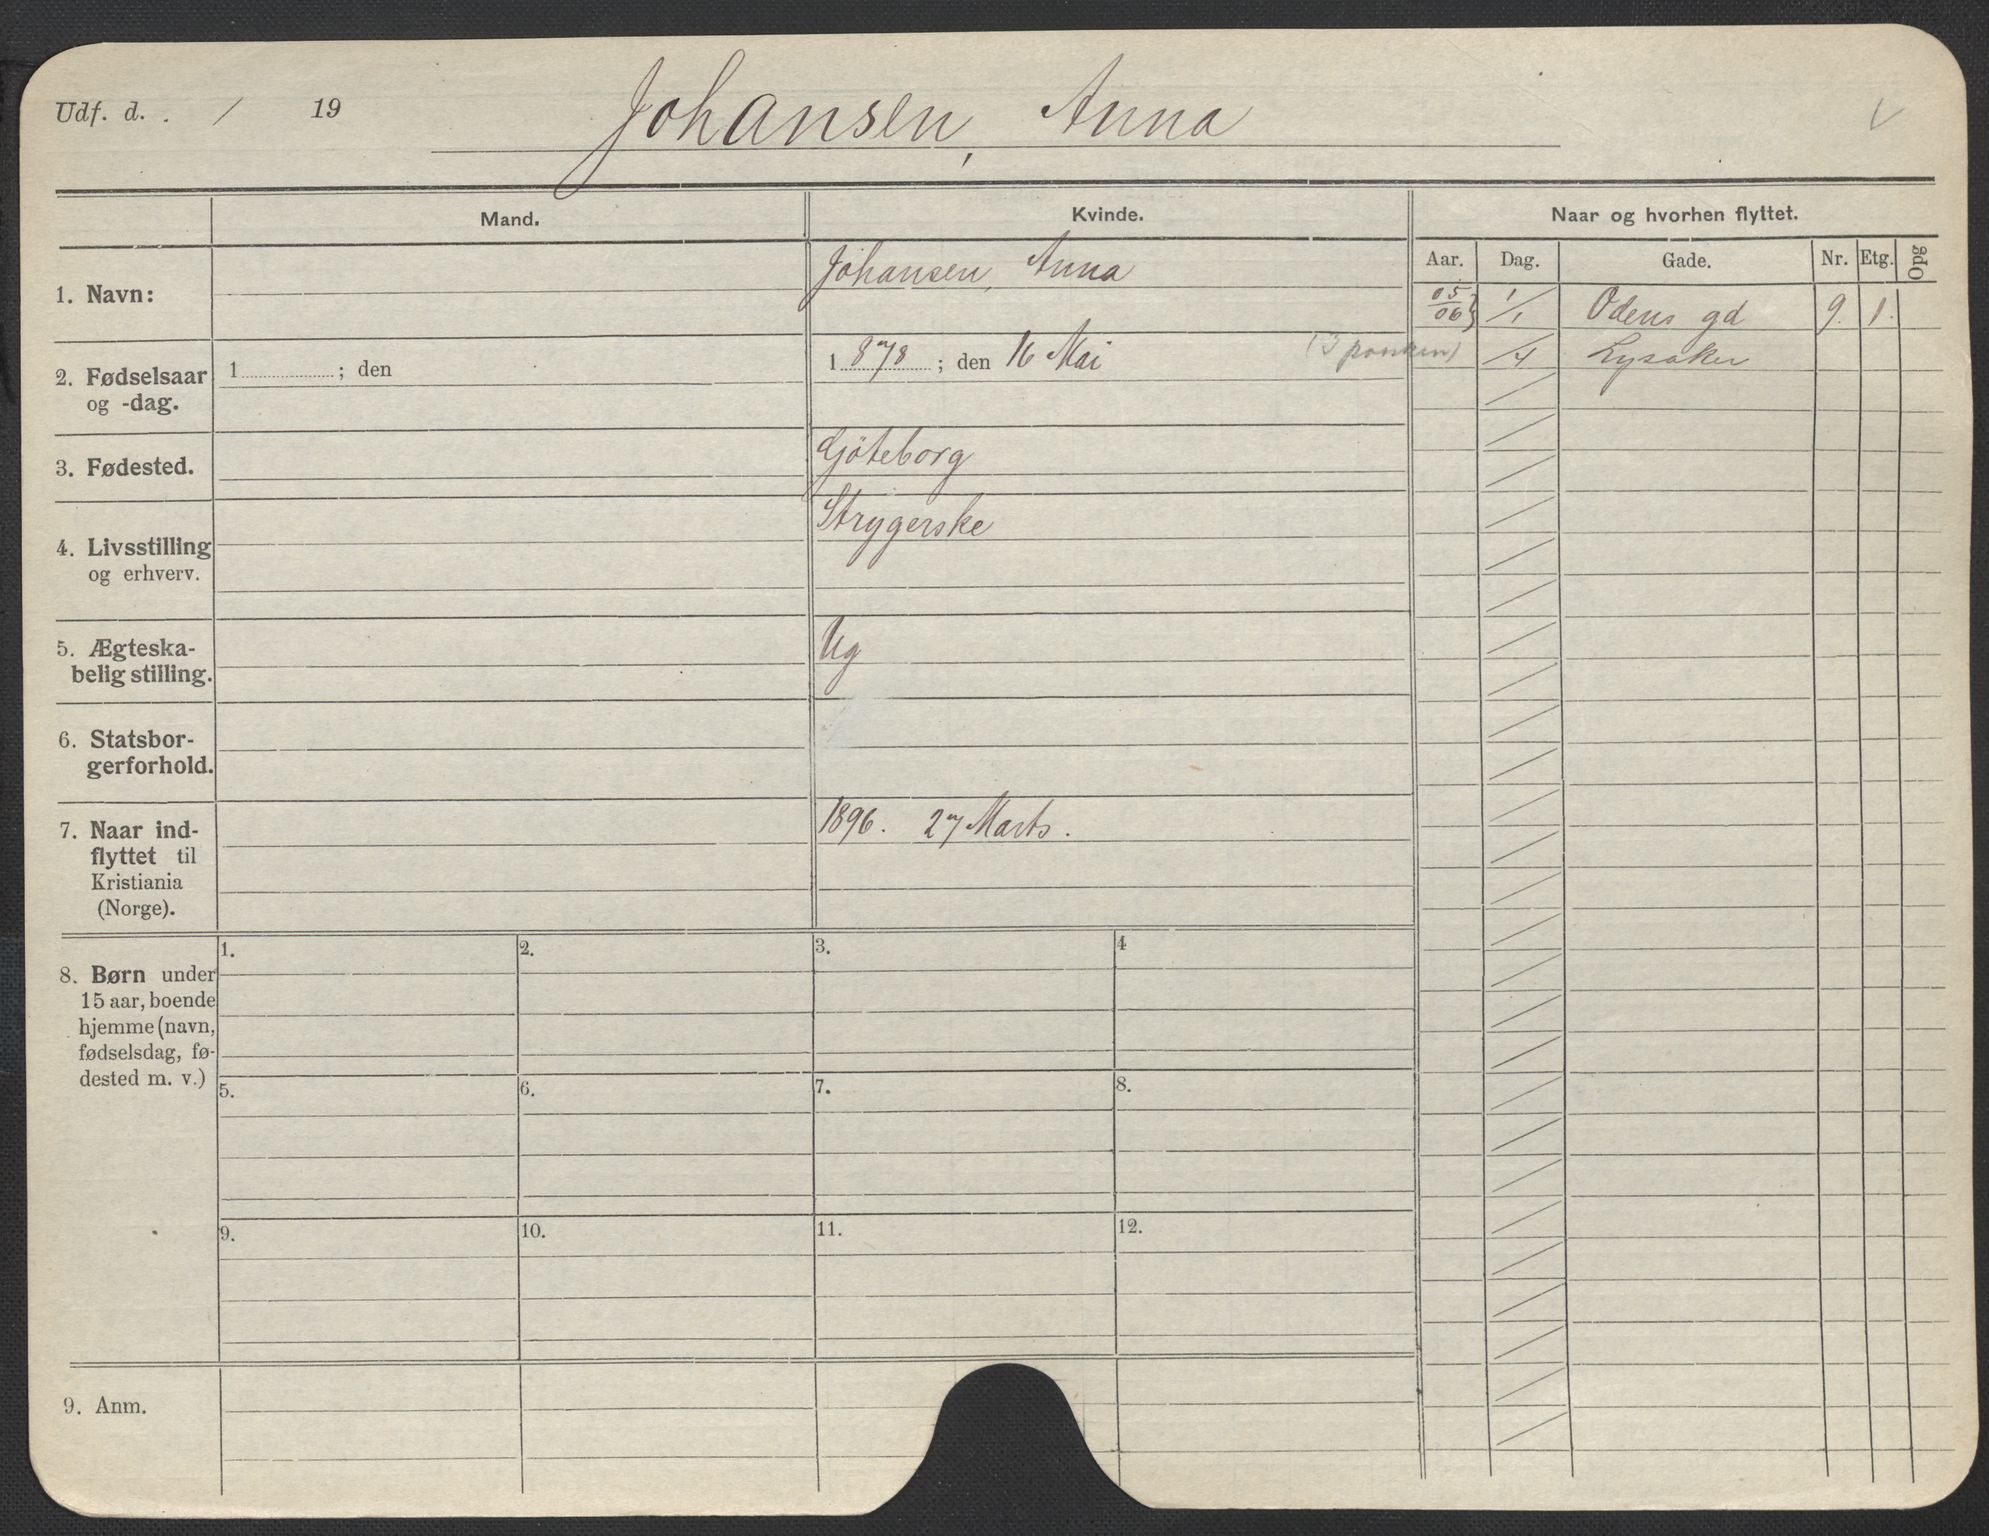 Udf. d. . / 19
Johansen, Anna
Mand.
Kvinde.
Naar og hvorhen flyttet.
Aar. Dag. Gade. Nr. Etg. Opg
1. Navn:
Johansen, Anna
05/06} 1/1 Odens gd 9. 1.
2. Fødselsaar
og -dag.
1 ; den
1 878 ; den 16 Mai
/4 Lysaker
3. Fødested.
Göteborg
4. Livsstilling
og erhverv.
Strygerske
5. Ægteska-
belig stilling.
Ug
6. Statsbor-
gerforhold.
7. Naar ind-
flyttet til
Kristiania
(Norge).
1896. 27 Marts.
8. Børn under
15 aar, boende
hjemme (navn,
fødselsdag, fø-
dested m. v.)
1. 2. 3. 4
5. 6. 7. 8.
9. 10. 11. 12.
9. Anm.